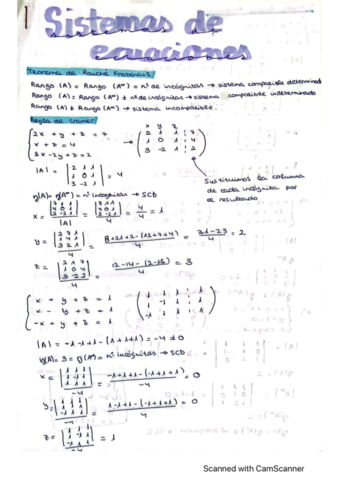 1
Sistemas de
ecuaciones
Teorema de Rouché Frobenius
Rango (A) = Rango (A*) = nº de incógnitas → sistema compatible determinado
Rango (A) = Rango (A*) ≠ nº de incógnitas → sistema compatible indeterminado
Rango (A) ≠ Rango (A*) → sistema incompatible.
Regla de cramer
x y z
2x + y + z = 7
x + z = 4
3x - 2y + z = 2
2 1 1 : 7
1 0 1 : 4
3 -2 1 : 2
|A| = | 2 1 1 |
| 1 0 1 | = 4
| 3 -2 1 |
Sustituimos la columna
de cada incógnita por
el resultado
rg(A) = rg(A*) = nº incógnitas → SCD
x = |7 1 1|
|4 0 1|
|2 -2 1|
|A|
= 4/4 = 1
y = |2 7 1|
|1 4 1|
|3 2 1|
4
= 8+21+2-(12+7+4) / 4 = 31-23 / 4 = 2
z = |2 1 7|
|1 0 4|
|3 -2 2|
4
= 3
x + y + z = 1
x - y + z = 1
-x + y + z = 1
|A| = -1-1+1-(1+1+1) = -4 ≠ 0
rg(A) = 3 = rg(A*) = nº incógnitas → SCD
x =
-4
= 0
y =
= 0
z =
-4
= 1
Scanned with CamScanner